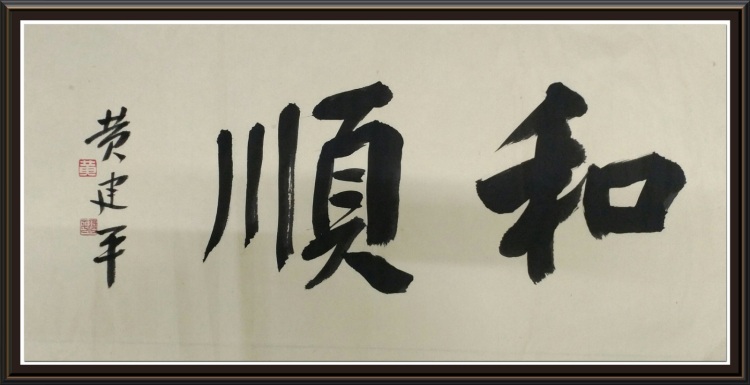 和順
黄建平